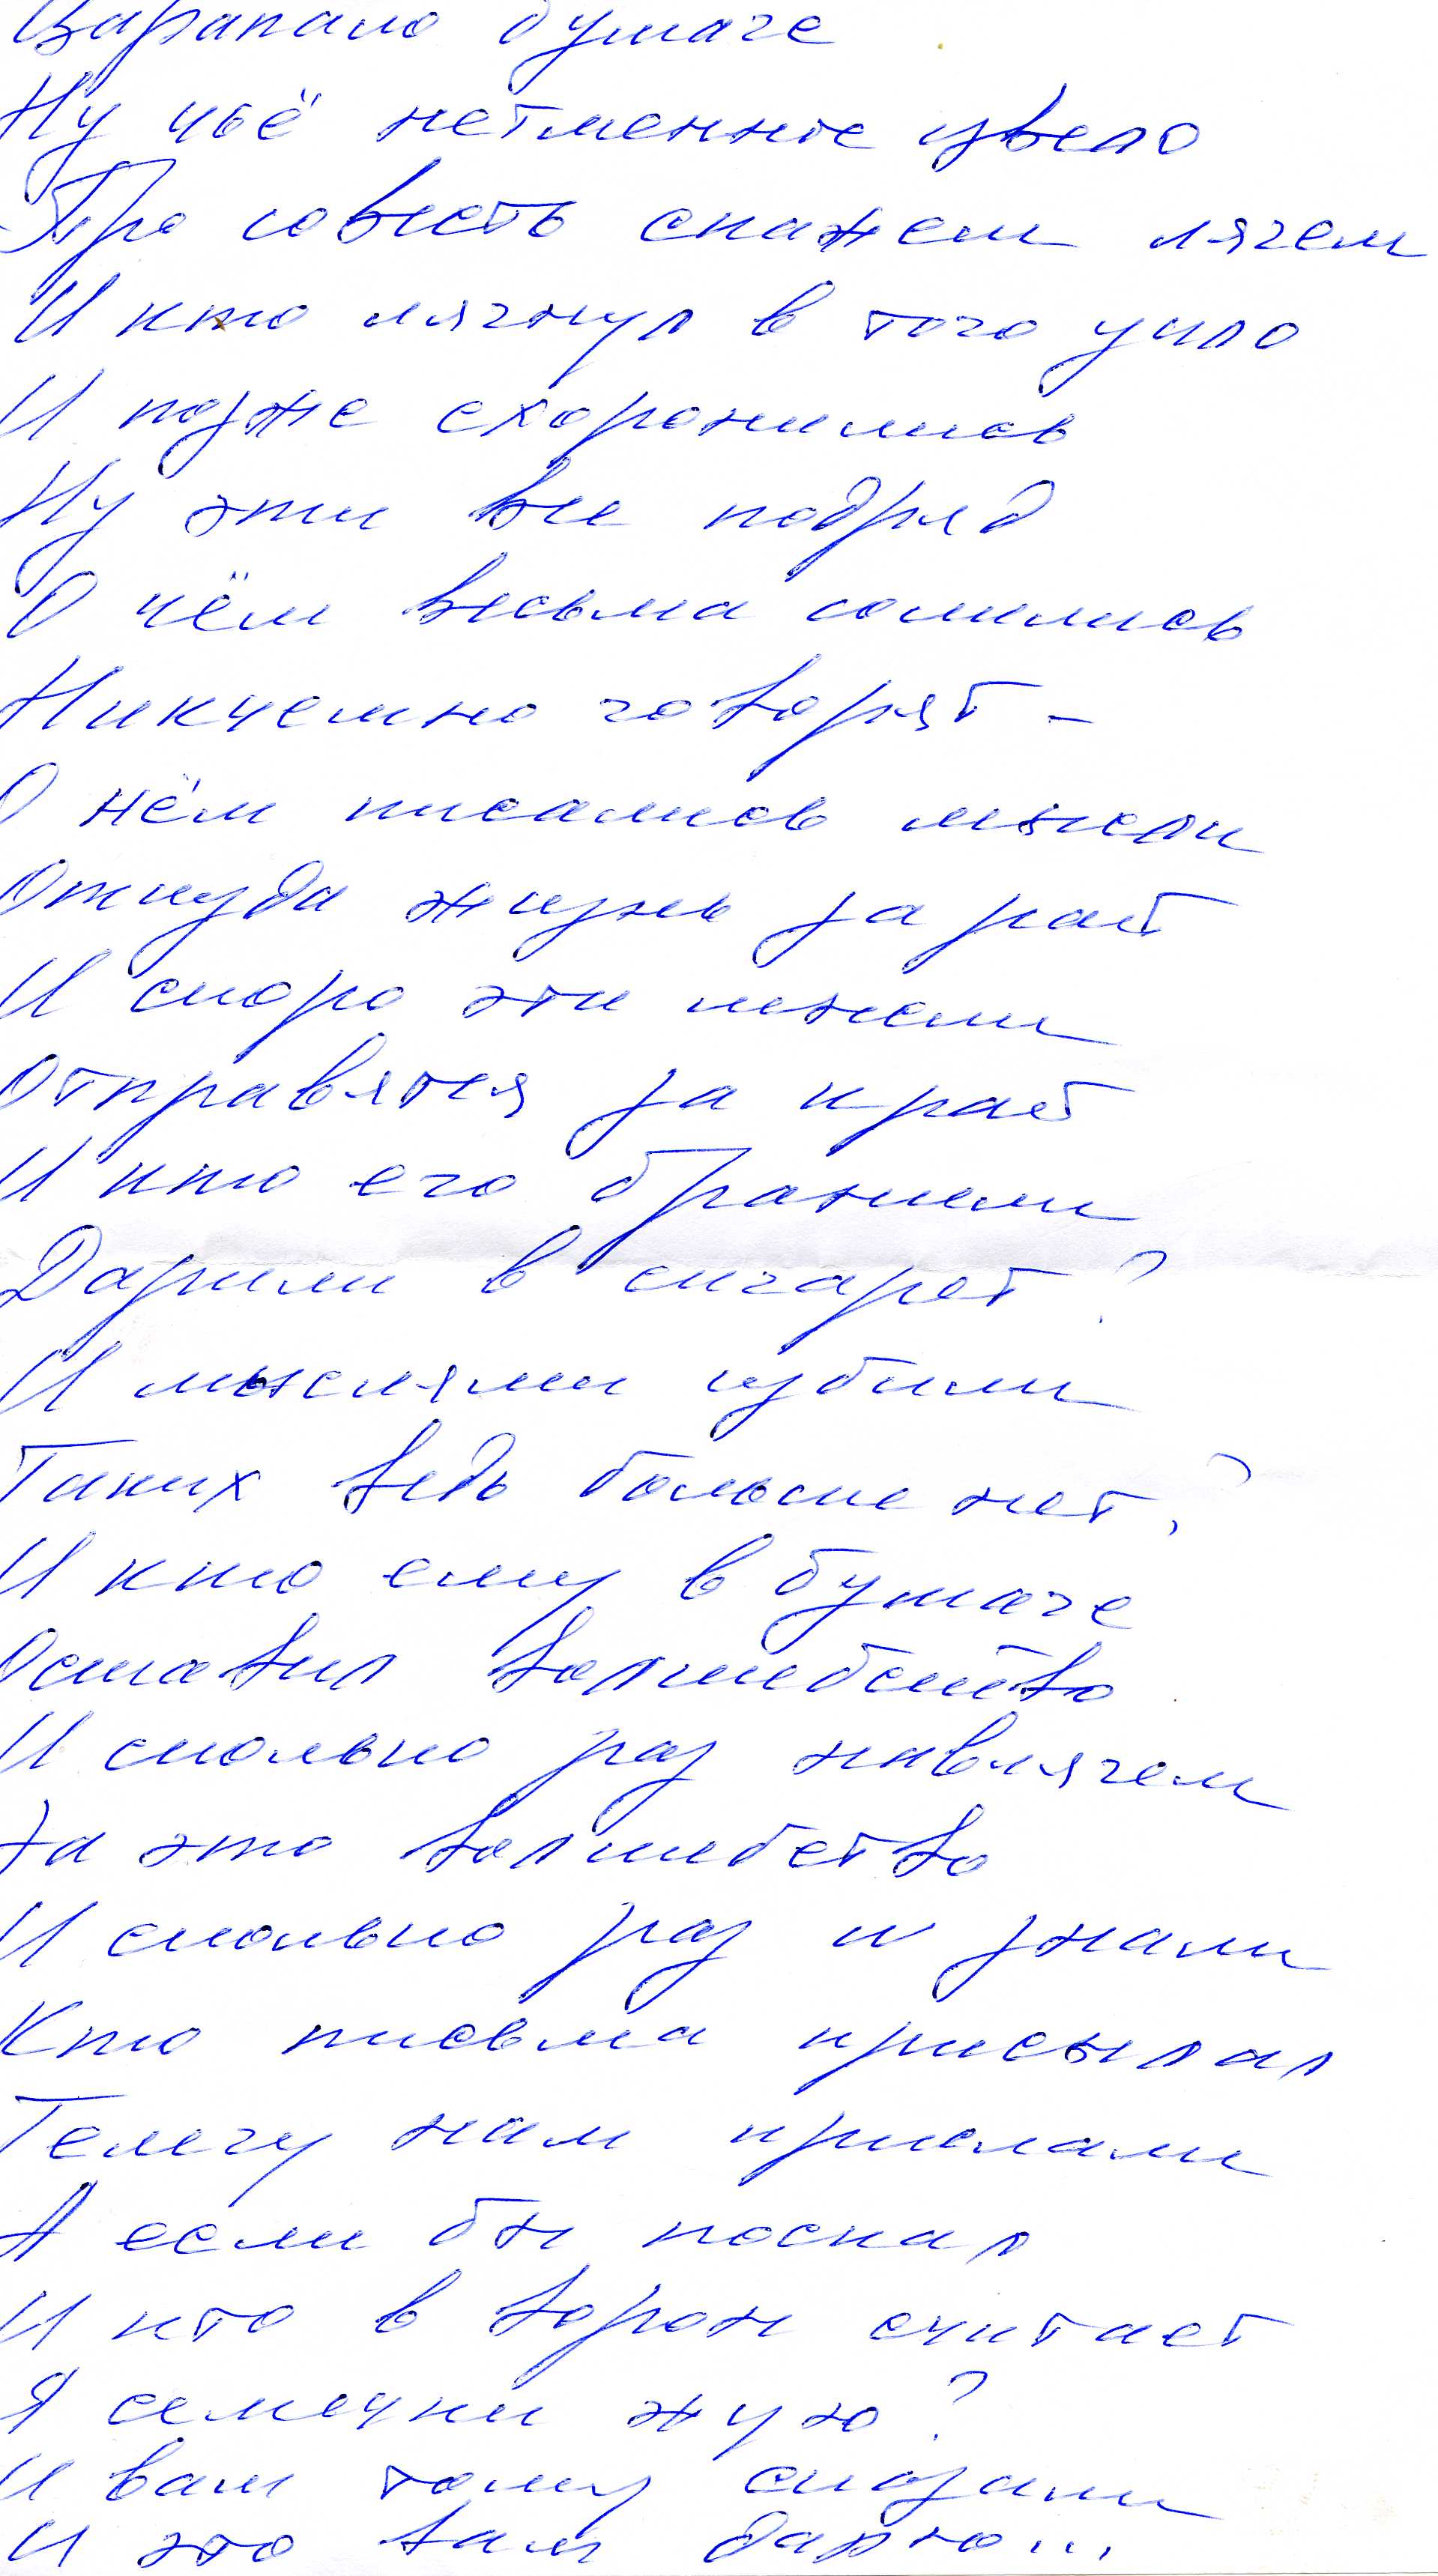 Царапало бумаге
Ну чьё нетленное цвело
Про совесть скажем лягем
И кто лягнул в того ушло
И позже схоронились
Ну эти все подряд
О чём весьма сомились
Никчемно говорят -
О нём писались мысли
Откуда жизнь за рает
И скоро эти
Отправятся за край
И кто его бранили
Дарили в сигарет?
И мыслями избили
Таких ведь больше нет?
И кто ему в бумаге
Оставил волшебство
И сколько раз навлягем
За это волшебство
И сколько раз и знали
Кто письма присылал
Телегу нам прислали
А если бы поскал
И кто в ворон считает
Я семечки жую?
И вам тому сказали
И это вам дарю...